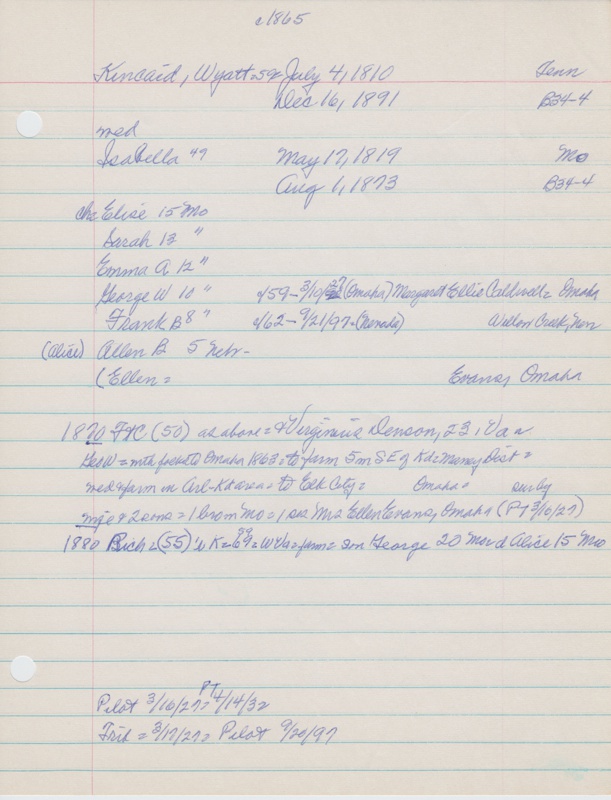 c1865
Kincaid, Wyatt = 59 July 4, 1810 Tenn
Dec 16, 1891 B34-4
med
Isabella 49 May 17, 1819 Mo
Aug 1, 1873 B34-4
chs Elise 15 Mo
Sarah 13 "
Emma A 12 "
George W 10 " c/59 - 3/10/27 (Omaha) Margaret Ellis Caldwell = Omaha
Frank B 8 " c/62 - 9/21/97 - (Nemaha) Willow Creek,
(Alice) Allen B 5 Nebr -
(Ellen = Evans, Omaha
1870 FtC (50) as above = & Virginia Denson, 23, Va
Geo W = to Omaha 1863 = to farm 5 m SE of = Dist =
med & farm in = to Elk City = Omaha = surby
wife & 2 sons = 1 bro in Mo = 1 sis Mrs Ellen Evans, Omaha (PT 3/10/27)
1880 Rich = (55) W K = 69 = W Va = farm = son George 20 Mo & d Alice 15 Mo
Pilot 3/10/27 = PT 4/14/32
Trib = 3/17/27 = Pilot 9/20/97